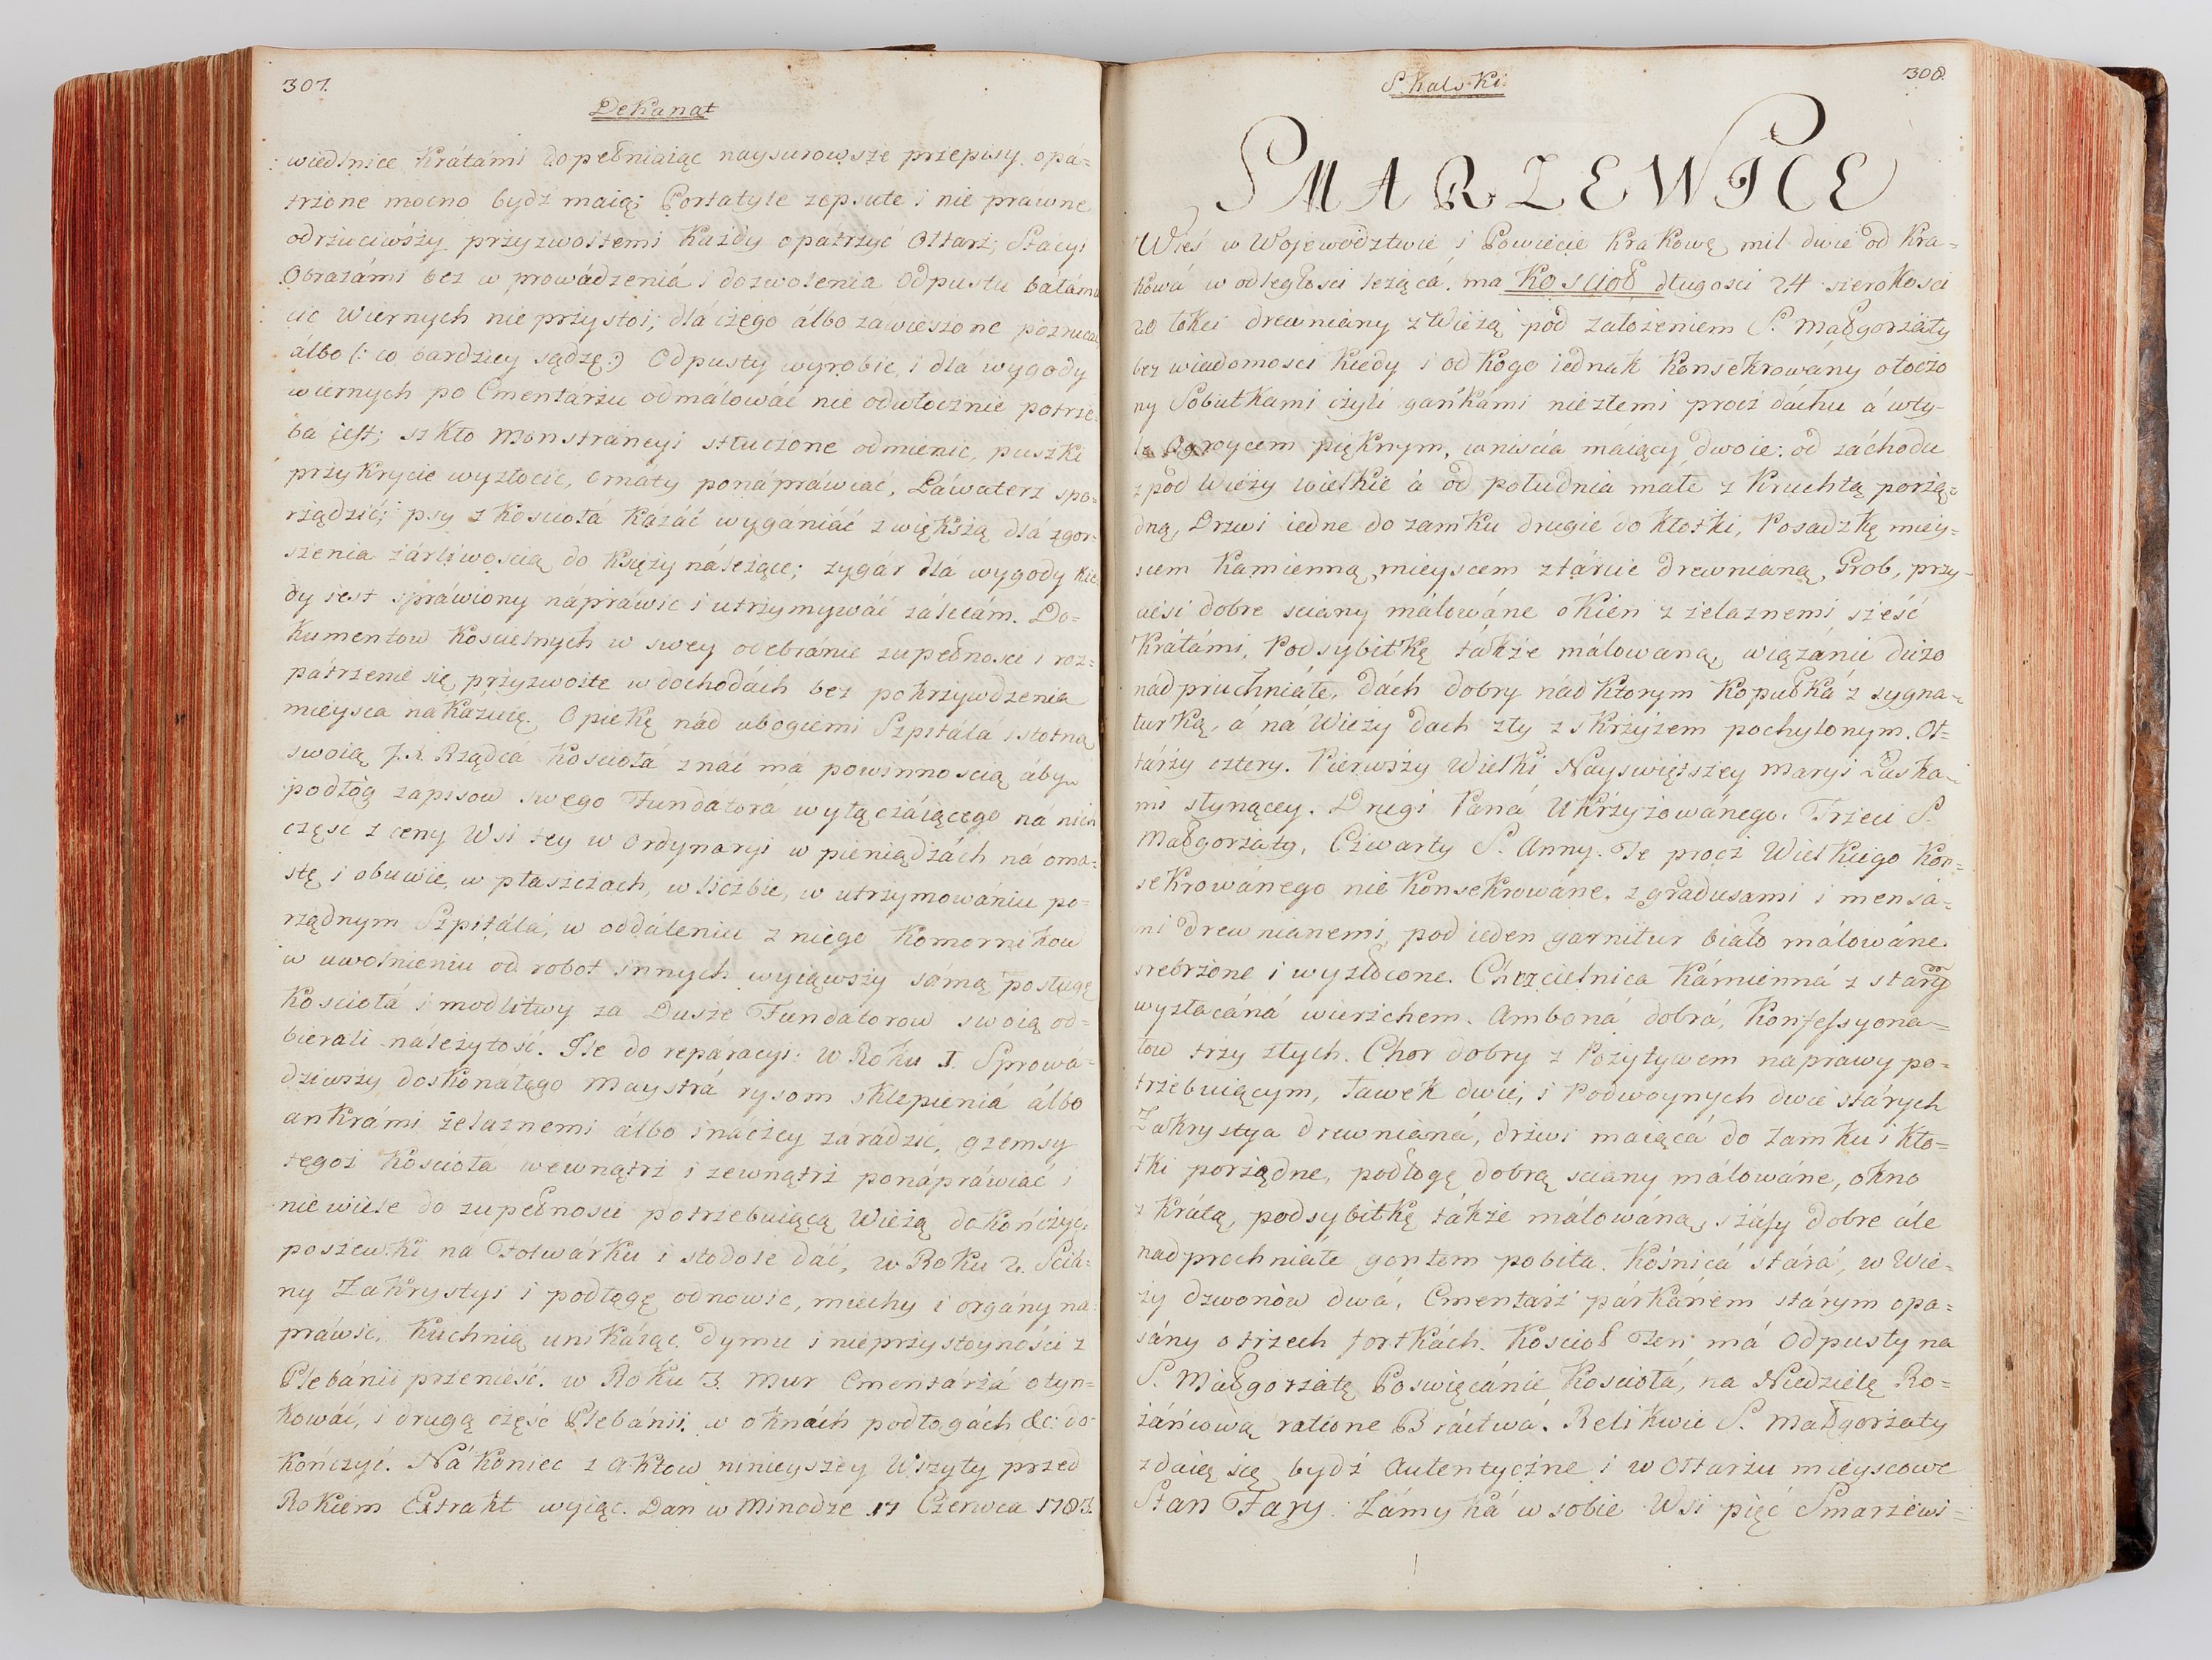 307.
Dekanat
wiedlnice Krátámi dopełniaiąc naysurowsze przepisy opá=
trzone mocno bydź maią; Portatyle zepsute i nie prawne
odrzuciwszy przyzwoitemi Każdy opatrzyć Ołtarz; Stacyi
Obrazámi bez wprowádzeniá i dozwolenia Odpustu bałámu
cić Wiernych nie przystoi; dlá czego álbo zawieszone
álbo (: co bardziey sądzę:) Odpusty wyrobić, i dla wygody
wiernych po Cmentárzu odmálowáć nie odwłocznie potrze=
ba jest; szkło Monstráncyi stłuczone odmienić, puszki
przykrycie wyzłocić, ornaty ponápráwiać, Láwaterz spo=
rządzić; psy z Kosciołá Kázáć wyganiáć z większą dlá zgor=
szenia żárliwością do Księży náleżące; zygar dlá wygody kie
dy iest spráwiony nápráwić i utrzymywáć zálecám. Do=
kumentow Kościelnych w swey odebránie zupełności i roz=
patrzenie się przyzwoite w dochodách bez pokrzywdzenia
mieysca nakázuię. Opiekę nád ubogiemi Szpitála istotną
swoią J.X. Rządcá Kościołá znáć má powinnością áby
podłóg zapisow swego Fundátorá wyłączáiącego ná nich
część z ceny Wsi tey w ordynaryi w pieniądzách ná oma=
stę i obuwie, w płaszczach, w liczbie, w utrzymowániu po=
rządnym Szpitálá, w oddáleniu z niego Komornikow
w uwolnieniu od robot innych wyiąwszy sámą posługę
Kościołá i modlitwy za Dusze Fundatorow swoią od=
bierali náleżytość. Ile do repáracyi: w Roku I. Sprowá=
dziwszy doskonáłego Maystrá rysom sklepieniá álbo
ankrámi żelaznemi álbo ináczey zárádzić, gzemsy
tegoż Kościoła wewnątrz i zewnątrz ponápráwiáć i
nie wiele do zupełności potrzebuiącą Wieżą dokończyć,
poszewki ná Folwárku i stodole dáć, w Roku 2. Sciá=
ny Zakrystyi i podłogę odnowić, miechy i orgány na=
práwić, Kuchnią unikáiąc dymu i nieprzystoyności z
Plebánii przenieść. w Roku 3. Mur Cmentarzá otyn=
kowáć, i drugą część Plebánii, w oknách podłogách &c: do=
kończyć. Ná Koniec z Aktow ninieyszey Wizyty przed
Rokiem Extrakt wyiąc. Dan w Minodze 17 Czerwca 1783.
Skalski.
308.
SMARZEWICE
Wieś w Woiewodztwie i Powiecie Krakowę mil dwie od Kra=
kowá w odległosci leżącá, ma Kościoł długosci 24 szerokosci
20 łokci drewniány z Wieżą pod záłożeniem S. Małgorzáty
bez wiadomosci kiedy i od kogo iednak Konsekrowany otoczo
ny Sobutkami czyli gankámi niezłemi procz dáchu á w ty-
le Ogroycem pięknym, wniscia máiący dwoie: od záchodu
z pod Wieży wielkie á od południa małe z Kruchtą porzą=
dną, Drzwi iedne do zamku drugie do kłotki, Posadzkę miey=
scem Kamienną mieyscem ztárcic drewnianą, Grob, przy=
ciesi dobre sciany málowáne okien z żelaznemi sześć
Krátámi, Podsybitkę tákże málowaną, wiązánie dużo
nádpruchniáłe, dách dobry nád ktorym Kopułká z sygna=
turką, á ná Wieży dach zły z skrzyżem pochylonym. Oł=
tárzy cztery. Pierwszy Wielki Nayświętszey Maryi Łaska=
mi słynącey. Drugi Paná Ukrzyżowánego. Trzeci S.
Małgorzáty, Czwarty S. Anny. Te procz Wielkiego Kon=
sekrowánego nie Konsekrowáne, z gradusami i mensa=
mi drewnianemi, pod ieden garnitur biało málowáne
srebrzone i wyzłocone. Chrzcielnica Kámienná z stárą
wyzłacáná wierzchem. Amboná dobrá, Konfessyona=
łow trzy złych. Chor dobry z Pozytywem naprawy po=
trzebuiącym, ławek dwie, i Podwoynych dwie stárych
Zakrystya drewnianá, drzwi maiącá do zamku i kło=
tki porządne, podłogę dobrą sciany málowáne, okno
z krátą, podsybitkę tákże málowáną, száfy dobre ále
nadprochniałe gontem pobita. Kośnicá stárá, w Wie=
ży dzwonów dwá, Cmentarz párkánem stárym opa=
sány o trzech fortkách. Kościoł ten má Odpusty na
S. Małgorzátę Poświęcánie Kościołá, na Niedzielę Ro=
żáńcową ratione Bráctwá. Relikwie S. Małgorzaty
zdaią się bydź Autentyczne i w Ołtarzu mieyscowe
Stan Fary. Zámyká w sobie Wsi pięć Smarzewi=